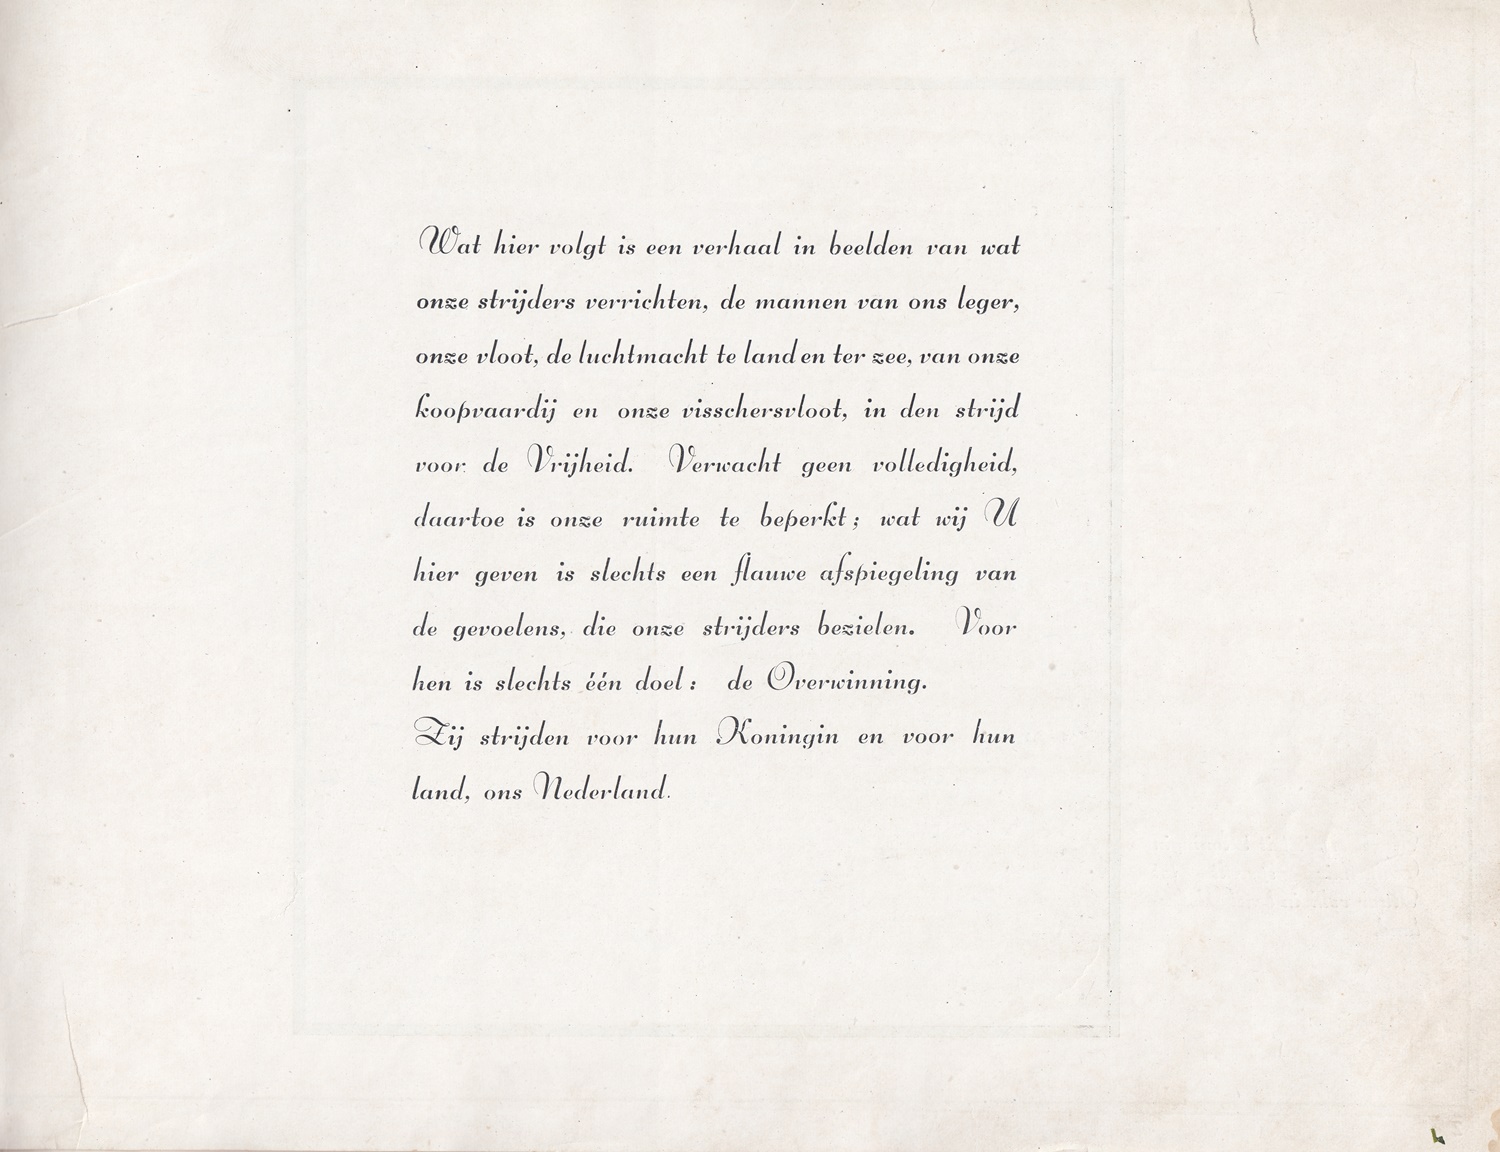 Wat hier volgt is een verhaal in beelden van wat
onze strijders verrichten, de mannen van ons leger,
onze vloot, de luchtmacht te land en ter zee, van onze
koopvaardij en onze visschersvloot, in den strijd
voor de Vrijheid. Verwacht geen volledigheid,
daartoe is onze ruimte te beperkt; wat wij U
hier geven is slechts een flauwe afspiegeling van
de gevoelens, die onze strijders bezielen. Voor
hen is slechts één doel: de Overwinning.
Zij strijden voor hun Koningin en voor hun
land, ons Nederland.